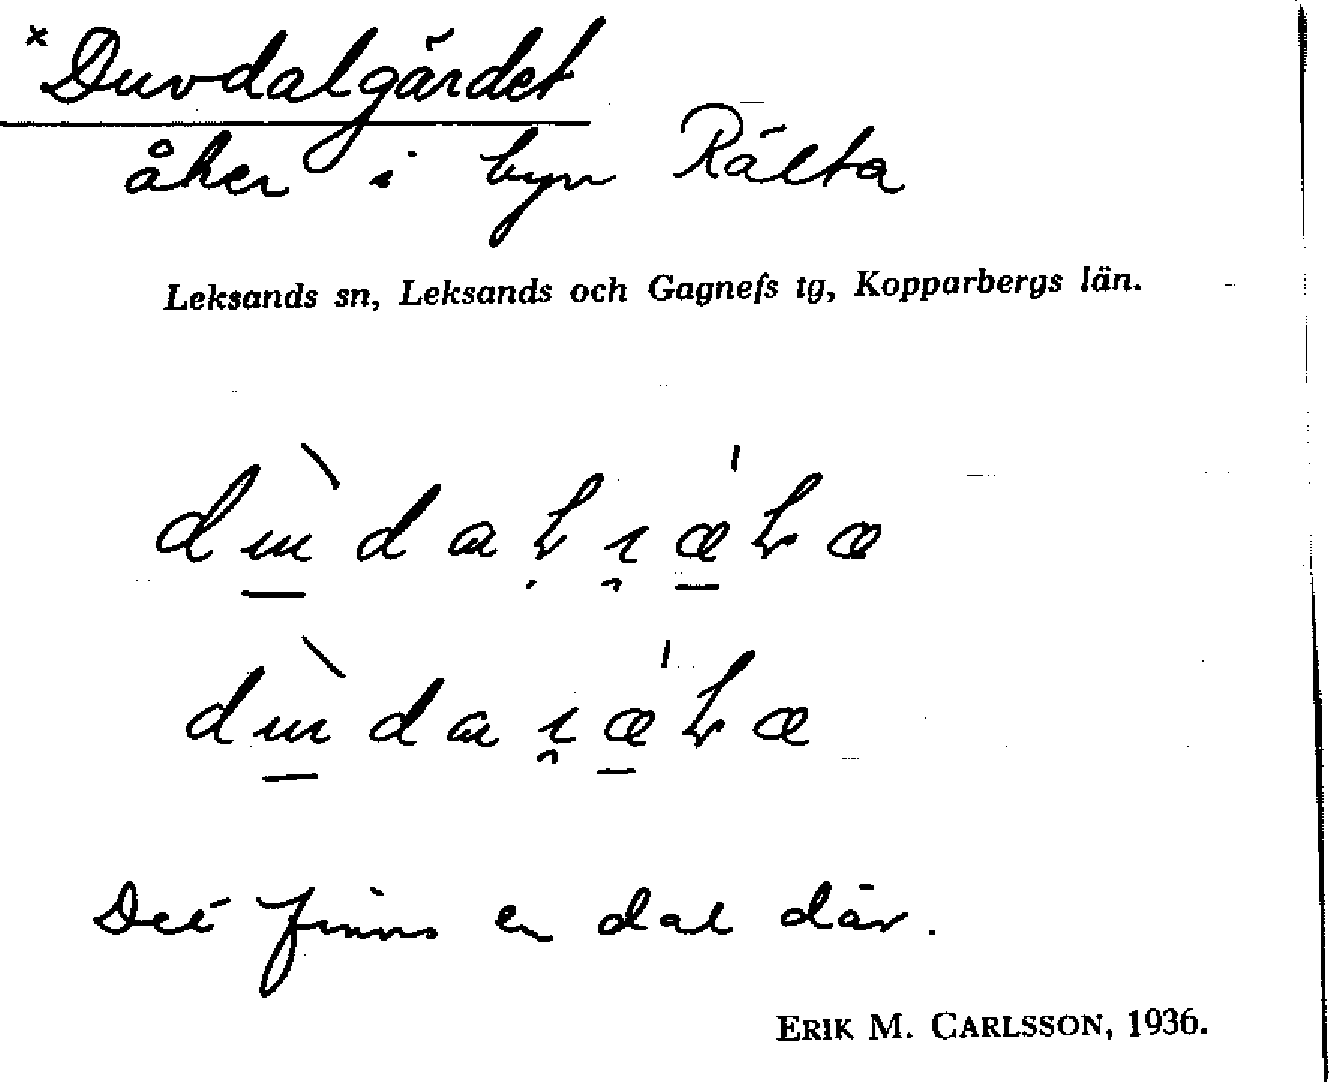 *Duvdalgärdet
åker i byn Rälta
Leksands sn, Leksands och Gagnefs tg, Kopparbergs län.
Det finns en dal där.
ERIK M. CARLSSON, 1936.